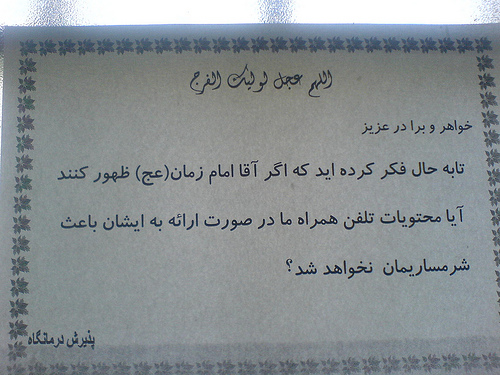 اللهم عجل لولیک الفرج
خواهر و برا در عزیز
تابه حال فکر کرده اید که اگر آقا امام زمان(عج) ظهور کنند
آیا محتویات تلفن همراه ما در صورت ارائه به ایشان باعث
شرمساریمان نخواهد شد؟
پذیرش درمانگاه